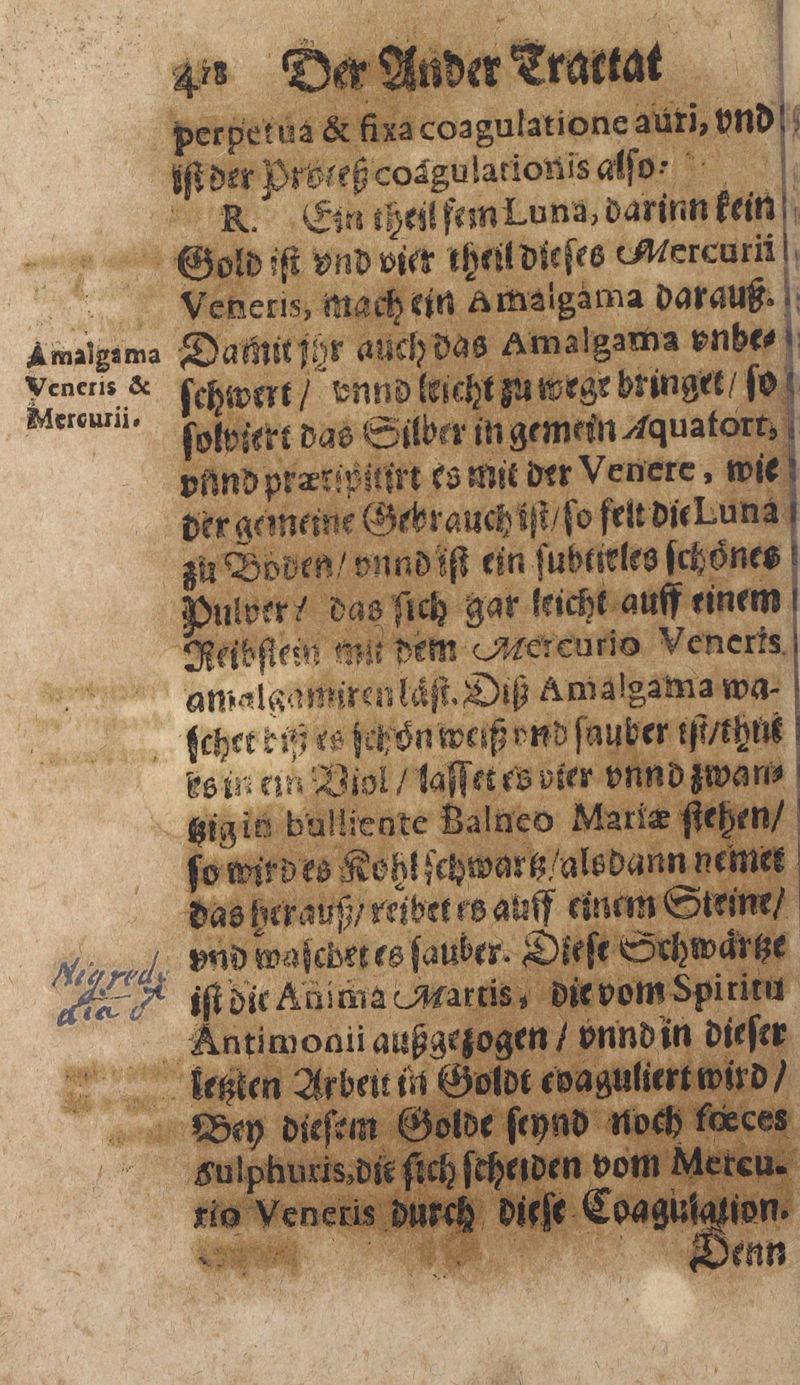 418 Der Ander Tractat
perpetua & fixa coagulatione auri, vnd
ist der Proceß coagulationis also:
R. Ein theil fein Luna, darinn kein
Gold ist vnd vier theil dieses Mercurii
Veneris, mach ein Amalgama darauß.
Damit jhr auch das Amalgama vnbe⸗
schwert / vnnd leicht zu wege bringet / so
solviert das Silber in gemein Aquafort,
vnnd præcipitirt es mit der Venere, wie
der gemeine Gebrauch ist / so felt die Luna
zu Boden / vnnd ist ein subtieles schönes
Pulver / das sich gar leicht auff einem
Reibstein mit dem Mercurio Veneris
amalgamiren läst. Diß Amalgama wa-
schet biß es schön weiß vnd sauber ist / thut
es in ein Viol / lasset es vier vnnd zwan⸗
tzig in bulliente Balneo Mariæ stehen /
so wird es Kohlschwartz / alsdann nemet
das herauß / reibet es auff einem Steine /
vnd waschet es sauber. Diese Schwärtze
ist die Anima Martis, die vom Spiritu
Antimonii außgezogen / vnnd in dieser
letzten Arbeit in Goldt coaguliert wird /
Bey diesem Golde seynd noch fœces
sulphuris, die sich scheiden vom Mercu-
rio Veneris durch diese Coagulation.
Denn
Amalgama
Veneris &
Mercurii.